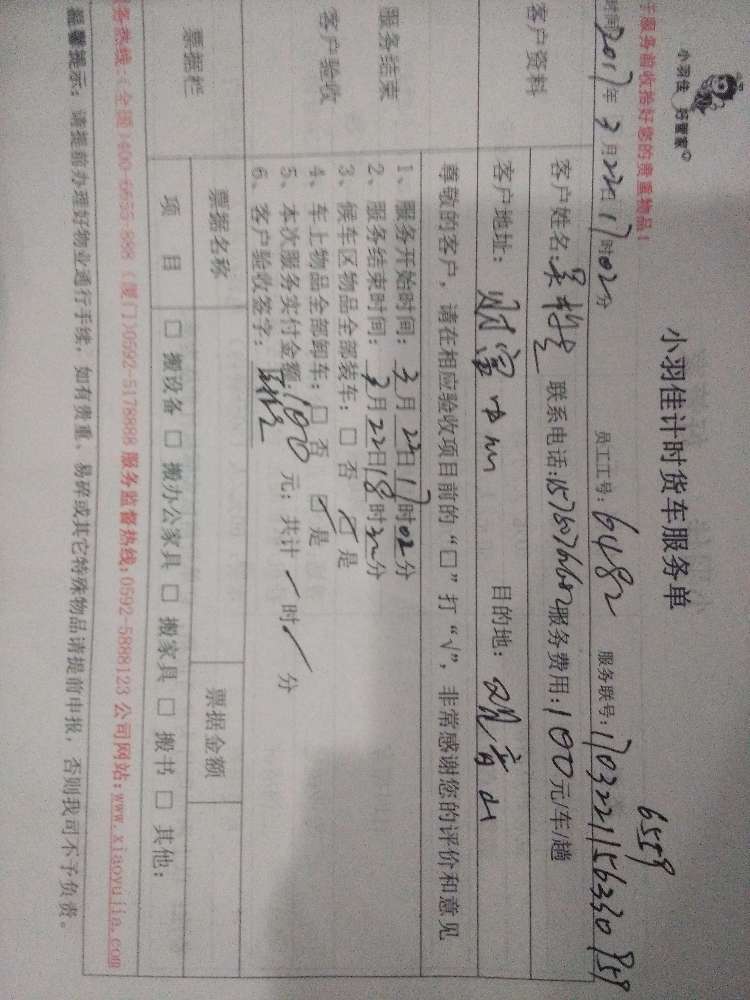 小羽佳 好管家
小羽佳计时货车服务单
手服务前收捡好您的贵重物品！
6559
时间 2017年3月22日17时02分 员工工号：6482 服务联号：
客户资料
客户姓名： 联系电话： 服务费用：100元/车/趟
客户地址： 目的地：观音山
尊敬的客户，请在相应验收项目前的“□”打“√”，非常感谢您的评价和意见
服务结束
客户验收
1、服务开始时间：3月22日17时02分
2、服务结束时间：3月22日18时 分
3、候车区物品全部装车：□ 否 ☑ 是
4、车上物品全部卸车：□ 否 ☑ 是
5、本次服务实付金额：100元；共计 时 分
6、客户验收签字：
票据栏
票据名称 票据金额
项 目 □ 搬设备 □ 搬办公家具 □ 搬家具 □ 搬书 □ 其他：
务热线：(全国)400-6655-888 (厦门)0592-5178888 服务监督热线：0592-5888123 公司网站：www.xiaoyujia.com
温馨提示：请提前办理好物业通行手续，如有贵重、易碎或其它特殊物品请提前申报，否则我司不予负责。